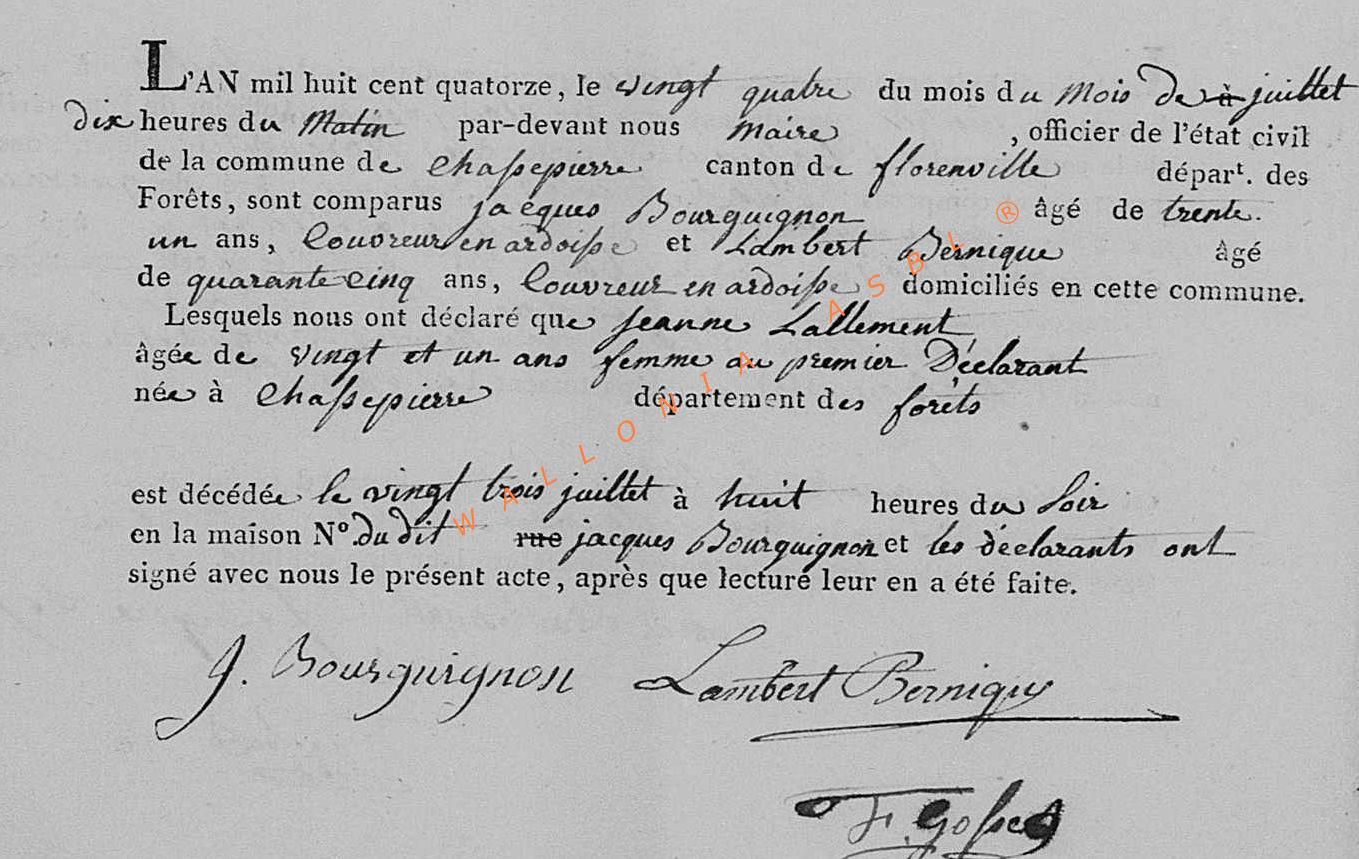 L'AN mil huit cent quatorze, le vingt quatre du mois du mois de à juillet
dix heures du Matin par-devant nous maire , officier de l'état civil
de la commune de Chassepierre canton de florenville départ. des
Forêts, sont comparus jacques Bourguignon âgé de trente.
un ans, Couvreur en ardoisse et Lambert Bernique âgé
de quarante Cinq ans, Couvreur en ardoisse domiciliés en cette commune.
Lesquels nous ont déclaré que Jeanne Lallement,
âgée de vingt et un ans femme au premier Déclarant
née à Chassepierre département des forêts
est décédée le vingt trois juillet à huit heures du Soir
en la maison Nº. du dit rue jacques Bourguignon et les déclarants ont
signé avec nous le présent acte, après que lecture leur en a été faite.
J. Bourguignon Lambert Bernique
F. Gosse
WALLONIA ASBL ®